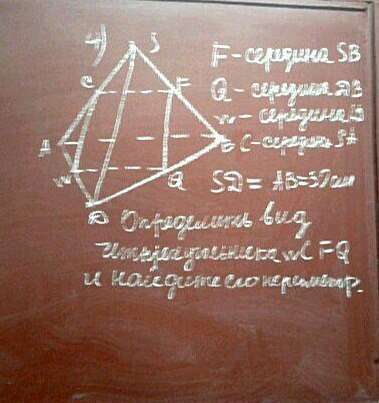 4)
S
C
F
A
B
W
Q
D
F - середина SB
Q - середина DB
W - середина
C - середина SA
SD = AB = 30 см
Определить вид
четырёхугольника WCFQ
и найдите его периметр.